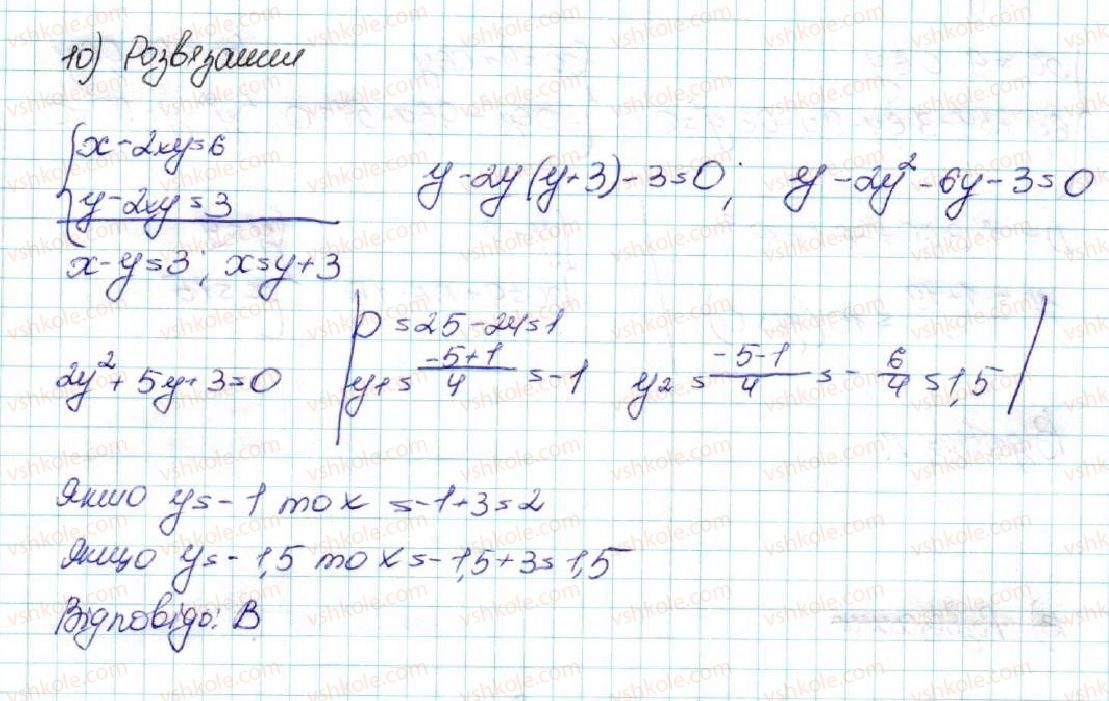 10) Розвязання
{ x - 2xy = 6
y - 2xy = 3
x - y = 3; x = y + 3
y - 2y(y + 3) - 3 = 0; y - 2y² - 6y - 3 = 0
2y² + 5y + 3 = 0
D = 25 - 24 = 1
y1 = (-5+1)/4 = -1 y2 = (-5-1)/4 = -6/4 = 1,5
Якшо y = -1 то x = -1 + 3 = 2
Якщо y = -1,5 то x = -1,5 + 3 = 1,5
Відповідь: В
vshkole.com